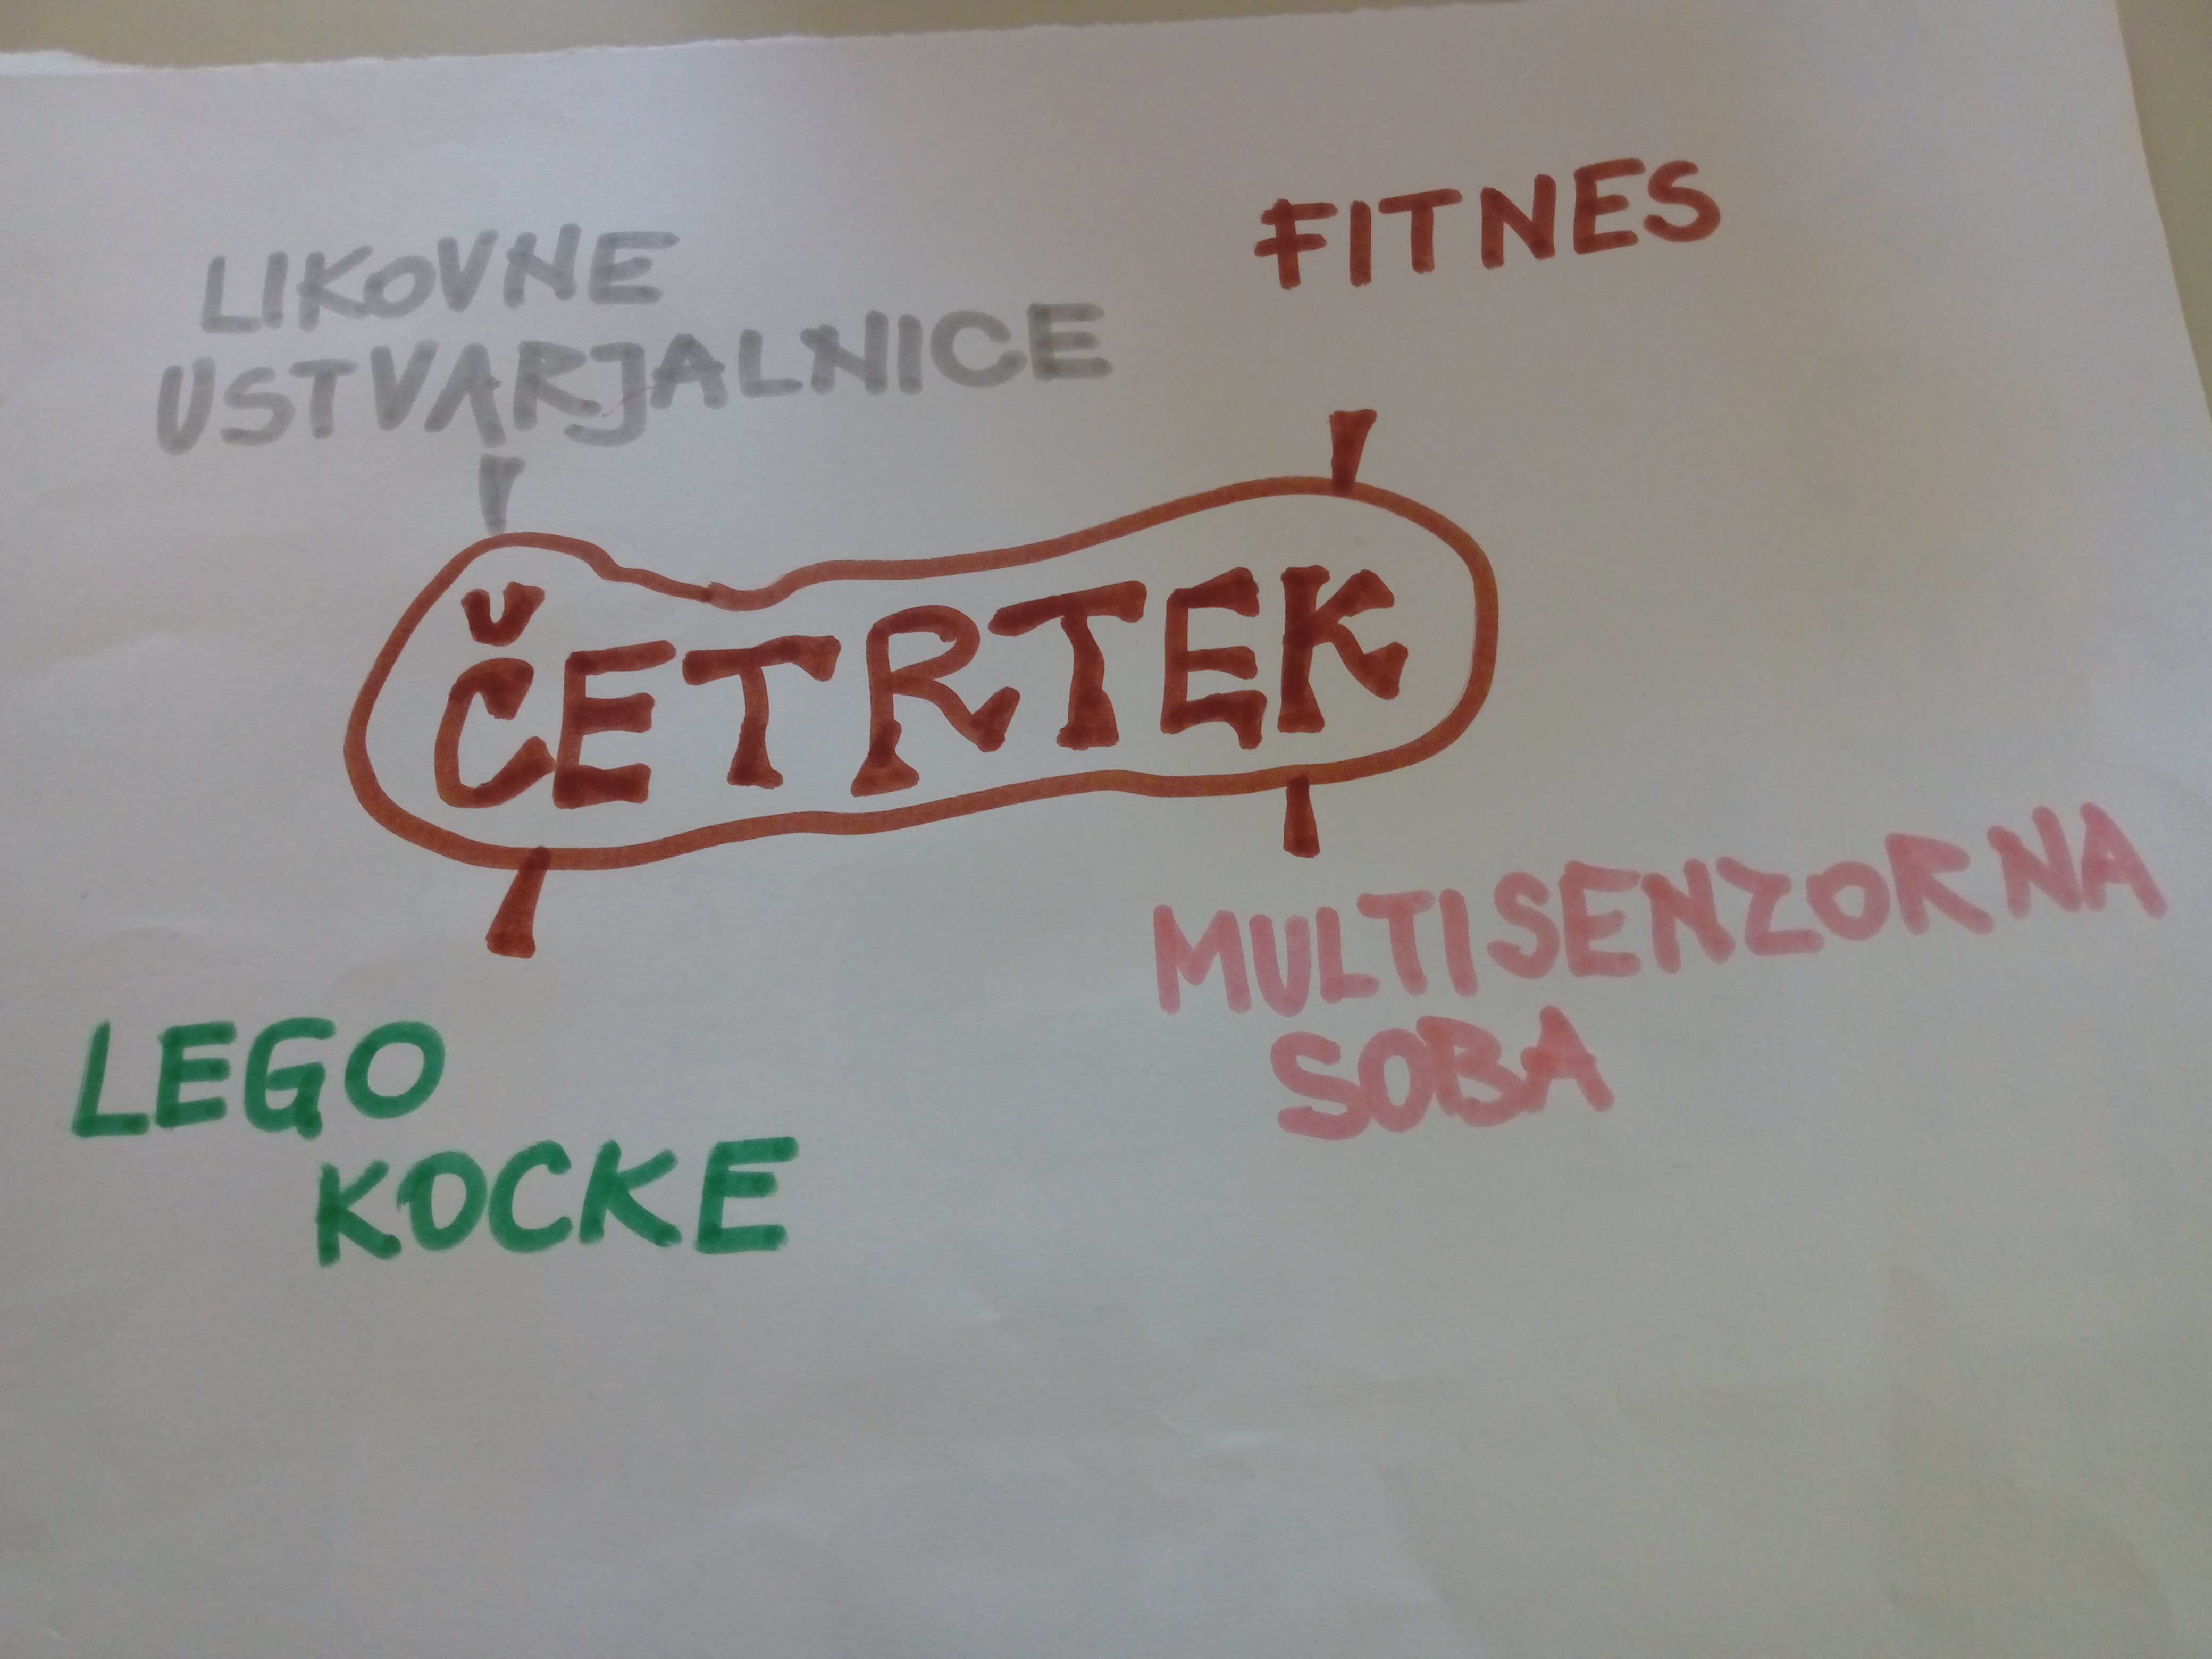 LIKOVNE
USTVARJALNICE
FITNES
ČETRTEK
LEGO
KOCKE
MULTISENZORNA
SOBA